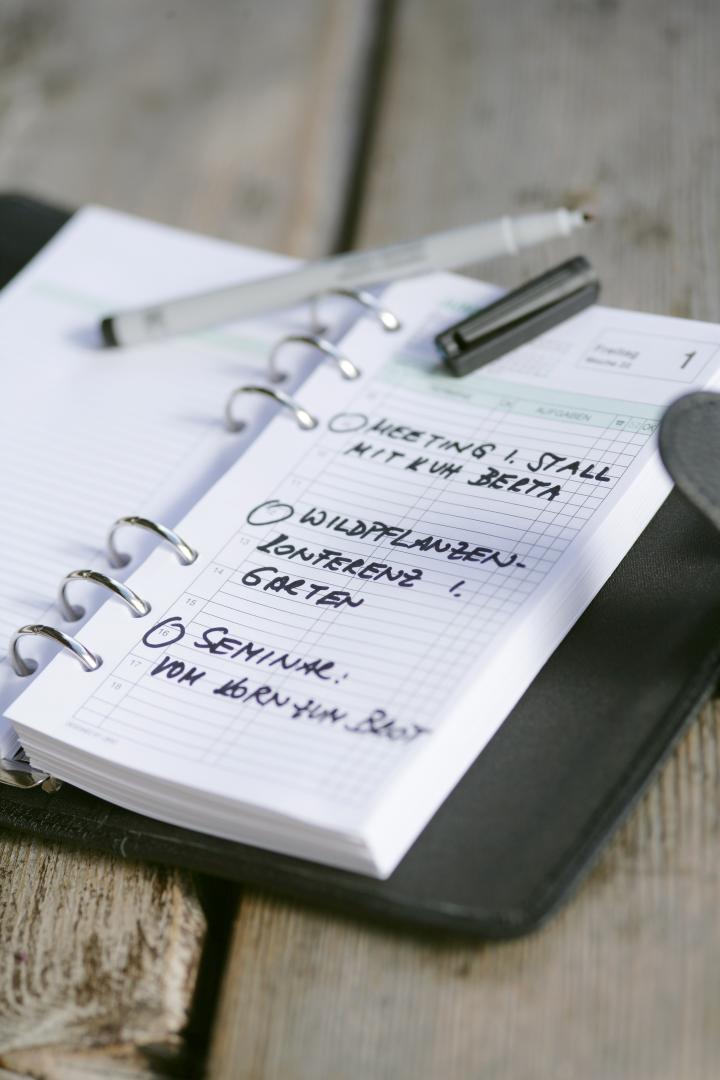 Freitag
Woche 22
1
AUFGABEN
OK
MEETING I. STALL
MIT KUH BERTA
11
WILDPFLANZEN-
13
KONFERENZ I.
14
GARTEN
15
16
SEMINAR:
17
VOM KORN ZUM BROT
18